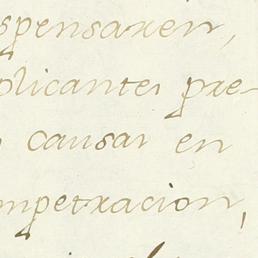 spensaren,
plicantes pre-
causar en
mpetracion,